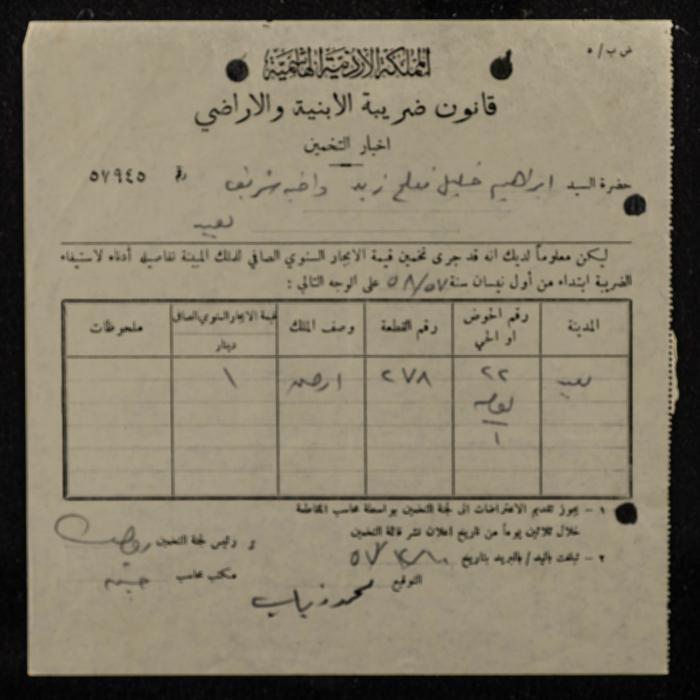 ض ب/٥
المملكة الاردنية الهاشمية
قانون ضريبة الأبنية والاراضي
اخبار التخمين
حضرة السيد ابراهيم خليل مفلح زيد واخيه شريف رقم ٥٧٩٤٥
ليكن معلوماً لديك انه قد جرى تخمين قيمة الايجار السنوي الصافي لملك المبينة تفاصيله أدناه لاستيفاء
الضريبة ابتداء من أول نيسان سنة ٥٨/٥٧ على الوجه التالي :
المدينة رقم الحوض او الحي رقم القطعة وصف الملك قيمة الايجار السنوي الصافي دينار ملحوظات
٢٢ ٢٧٨ ارض ١
١
١ – يجوز تقديم الاعتراضات الى لجنة التخمين بواسطة محاسب المقاطعة
خلال ثلاثين يوماً من تاريخ اعلان نشر قائمة التخمين
رئيس لجنة التخمين
٢ – تبلغت باليد / بالبريد بتاريخ
مكتب محاسب
التوقيع
محمد ذياب